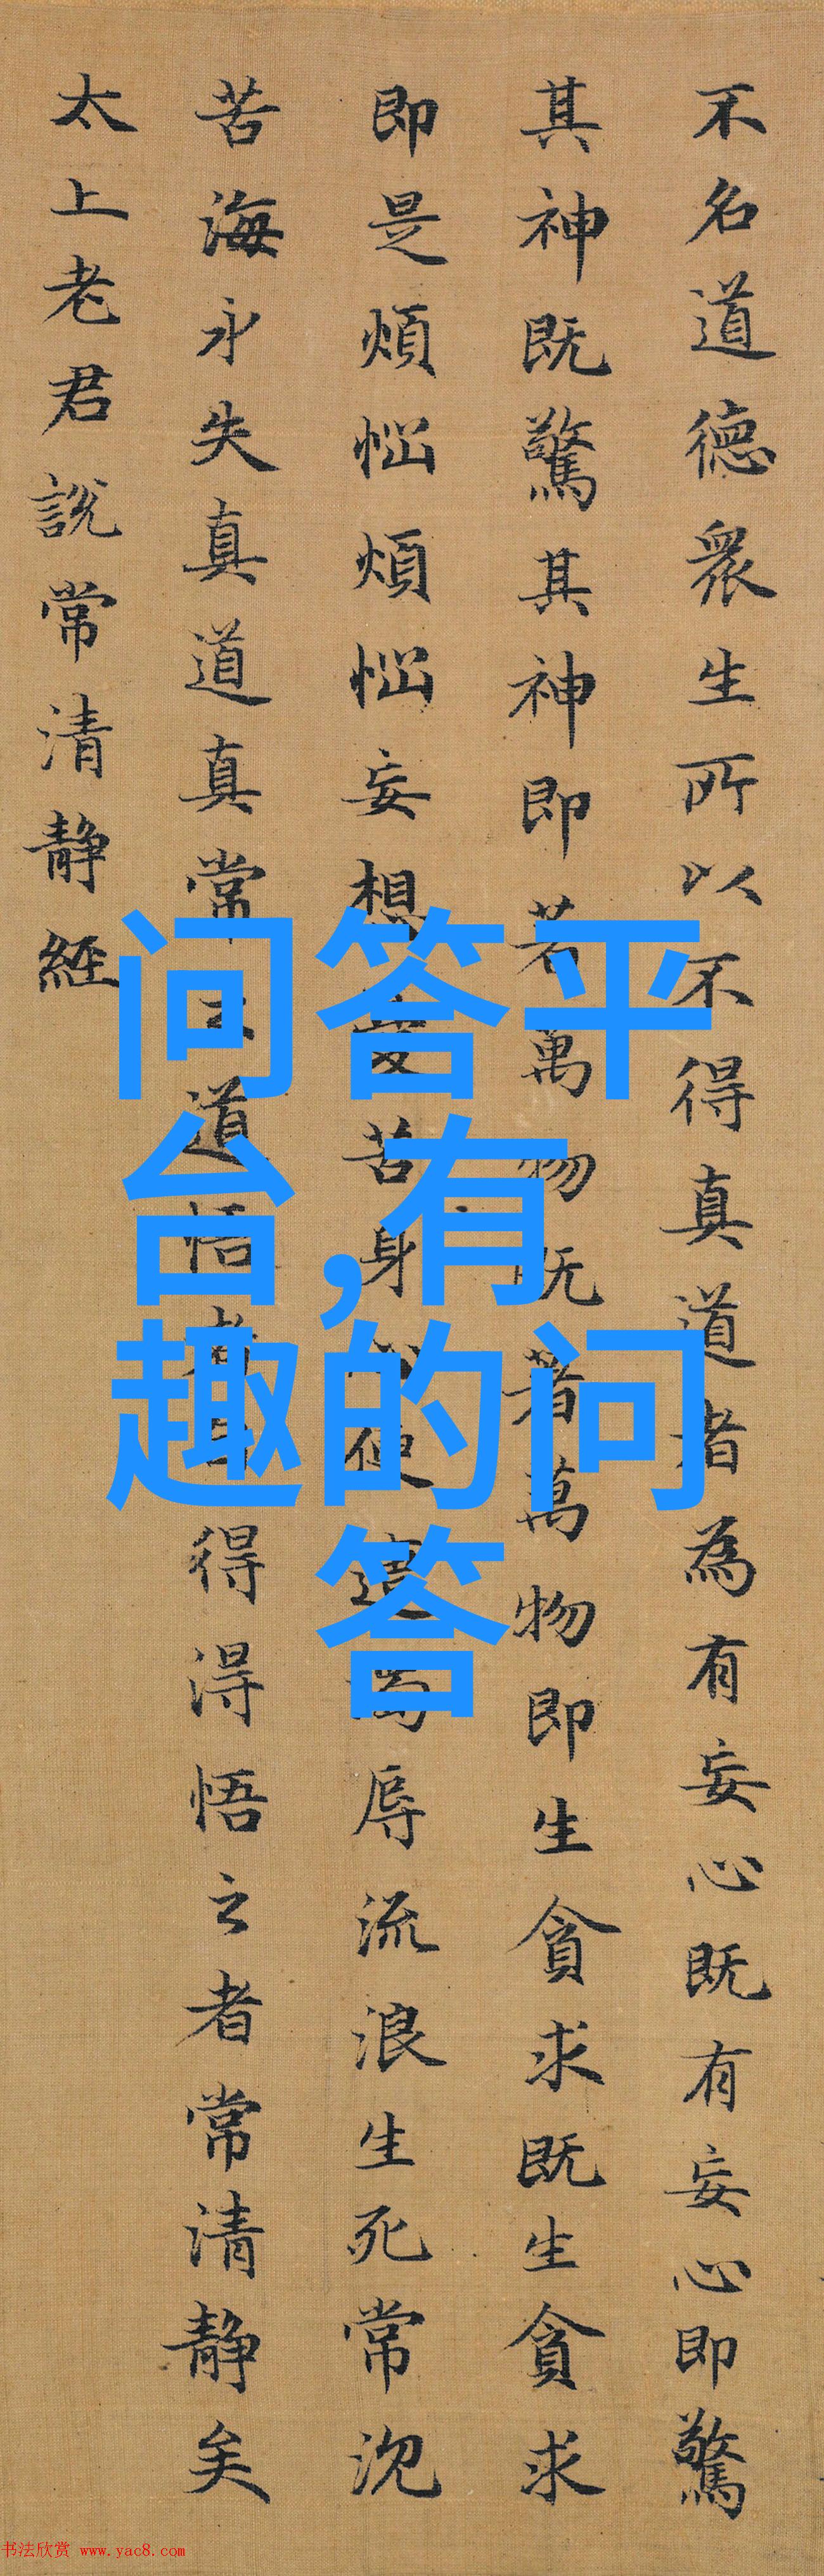 不名道德眾生所以不得真道者為有妄心既有妄心即驚
其神既驚其神即著萬物既著萬物即生貪求既生貪求
即是煩惱煩惱妄想憂苦身心便遭濁辱流浪生死常沉
苦海永失真道真常之道悟者自得得悟之者常清靜矣
太上老君說常清靜經
问答平
台,有
趣的问
答
书法欣赏 www.yac8.com